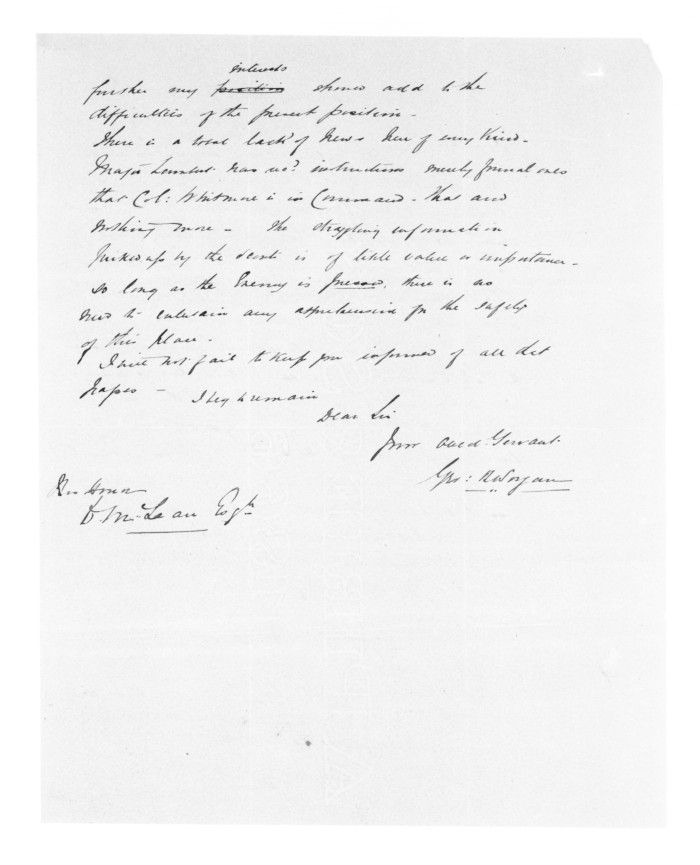 interests
further my position should add to the
difficulties of the present position -
There is a total lack of News here of every Kind -
Major Lambert has recd. instructions merely formal ones
that Col: Whitmore is in Command - that and
nothing more - The straggling information
picked up by the scouts is of little value or importance -
So long as the Enemy is pressed, there is no
need to entertain any apprehension for the safety
of this place -
I will not fail to keep you informed of all that
I beg to remain
Dear Sir
Your obed. Servant
His Honor
D. McLean Esqre